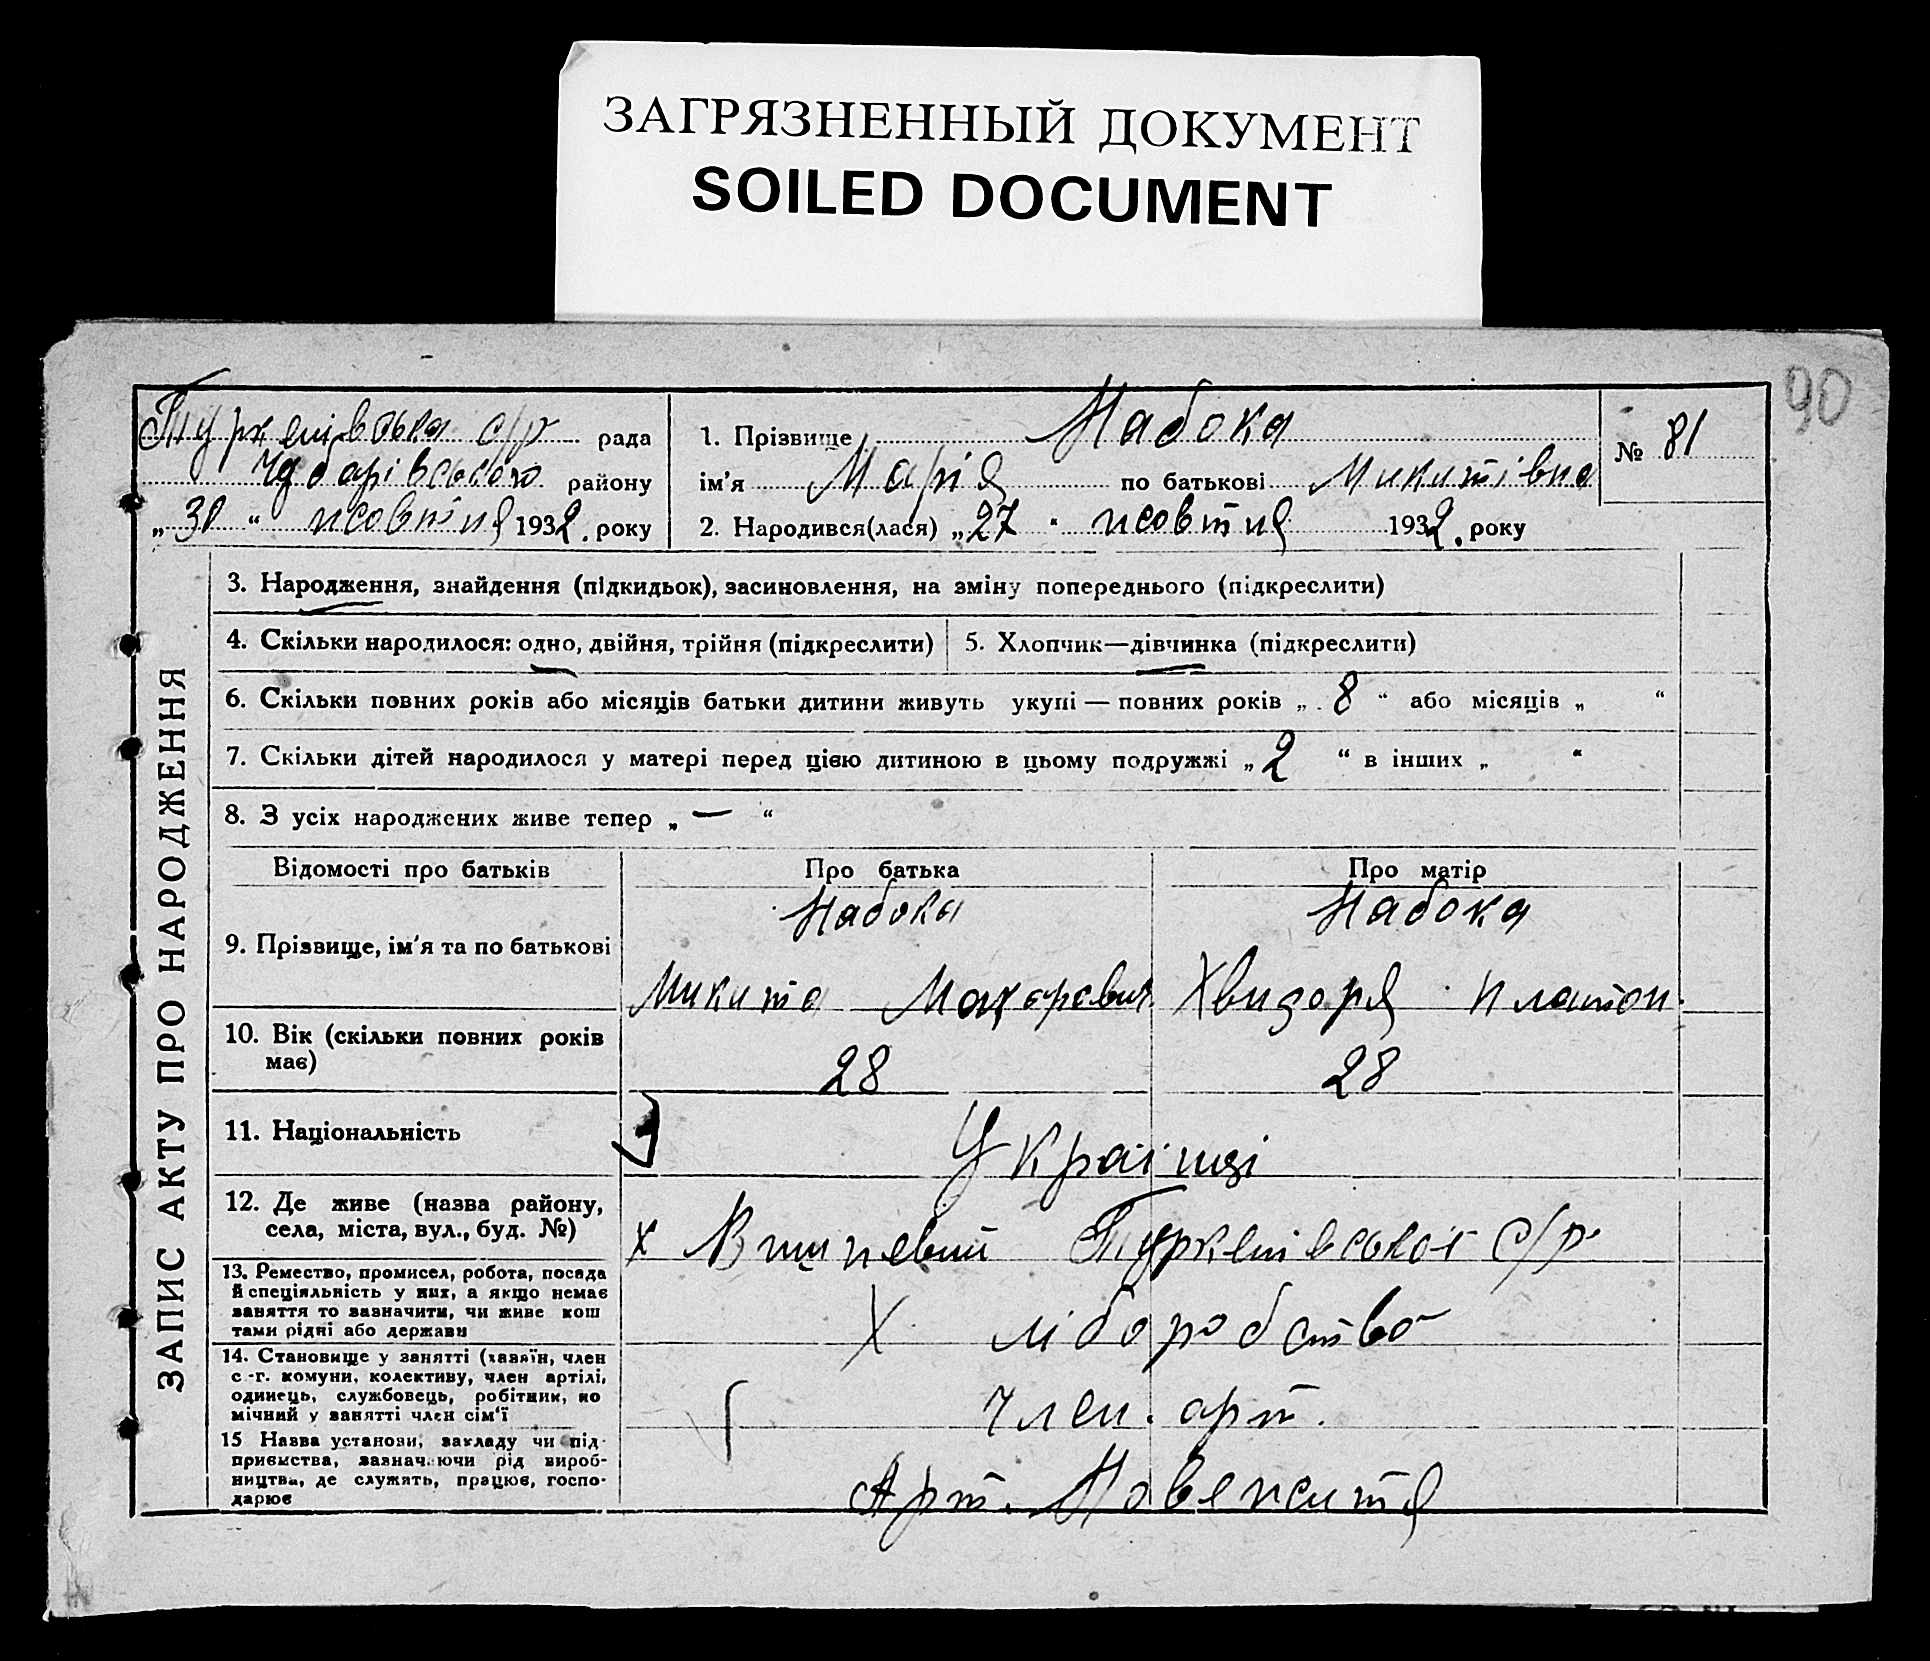 ЗАГРЯЗНЕННЫЙ ДОКУМЕНТ
SOILED DOCUMENT
90
Туркенівська с/р рада
Чубарівського району
„ 30 “ жовтня 1932. року
1. Прізвище Набока
ім'я Марія по батькові Микитівна
2. Народився(лася) „27 “ жовтня 1932. року
№ 81
ЗАПИС АКТУ ПРО НАРОДЖЕННЯ
3. Народження, знайдення (підкидьок), засиновлення, на зміну попереднього (підкреслити)
4. Скільки народилося: одно, двійня, трійня (підкреслити)
5. Хлопчик—дівчинка (підкреслити)
6. Скільки повних років або місяців батьки дитини живуть укупі — повних років „ 8 “ або місяців „ “
7. Скільки дітей народилося у матері перед цією дитиною в цьому подружжі „ 2 “ в інших „ “
8. З усіх народжених живе тепер „ — “
Відомості про батьків Про батька Про матір
9. Прізвище, ім'я та по батькові
Набока Набока
Микита Макарович Хвидоря Платон.
10. Вік (скільки повних років
має)
28 28
11. Національність
Українці
12. Де живе (назва району,
села, міста, вул., буд. №)
х Вишневий Туркенівської с/р
13. Ремество, промисел, робота, посада
й спеціяльність у них, а якщо немає
заняття то зазначити, чи живе кош
тами рідні або держави
Хліборобство
14. Становище у занятті (хазяїн, член
с.-г. комуни, колективу, член артілі,
одинець, службовець, робітник, по
мічний у занятті член сім'ї
член. арт.
15 Назва установи, закладу чи під-
приємства, зазначаючи рід вироб-
ництва, де служить, працює, госпо-
дарює
Арт.